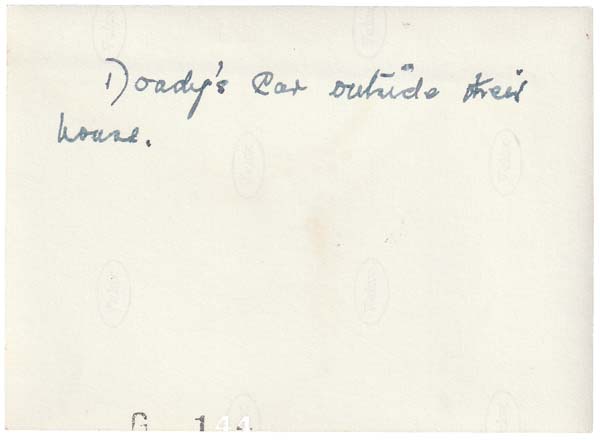 Doady's Car outside their
house.
G 144